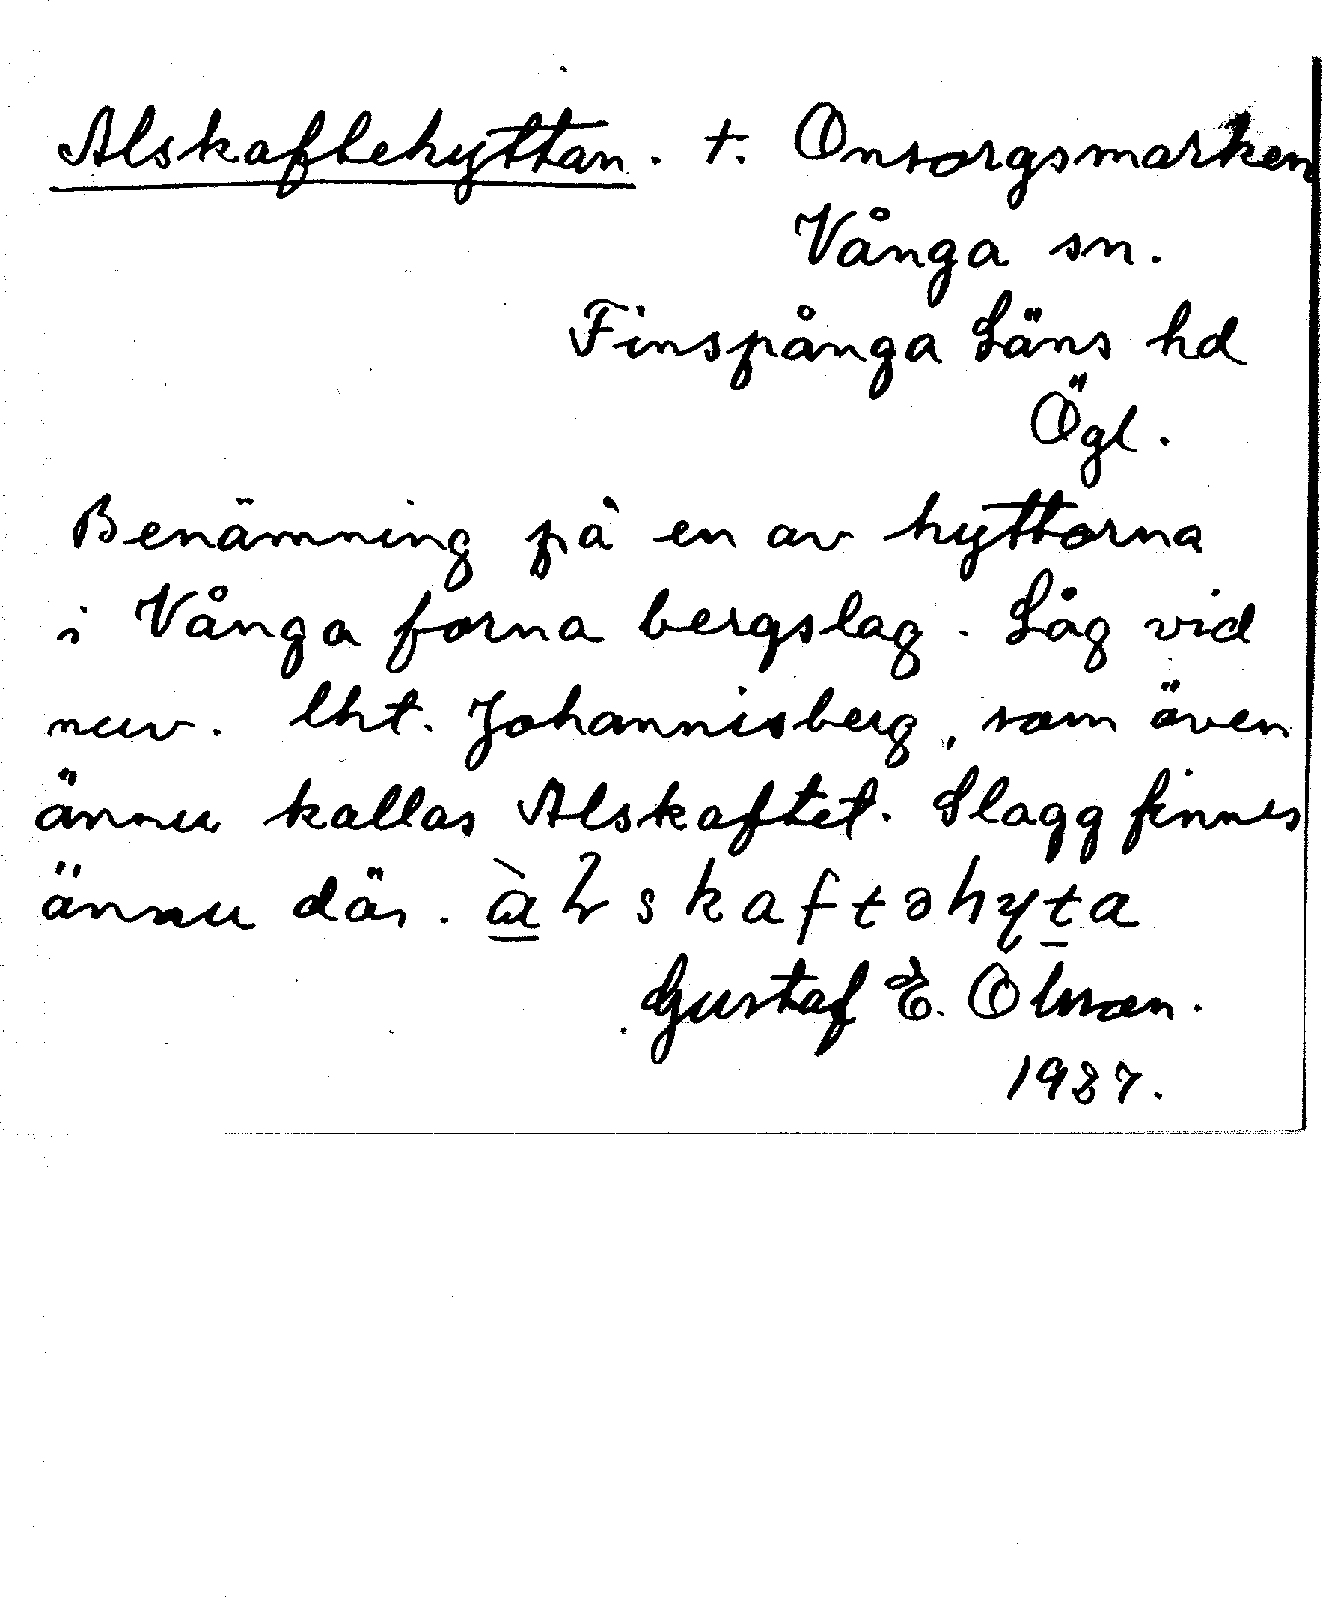 Alskaftehyttan. †. Onsorgsmarken
Vånga sn.
Finspånga Läns hd
Ögl.
Benämning på en av hyttorna
i Vånga forna bergslag. Låg vid
nuv. lht. Johannisberg, som även
ännu kallas Alskaftet. Slagg finnes
ännu där. àlskaftəhyta
Gustaf E. Olsson.
1937.